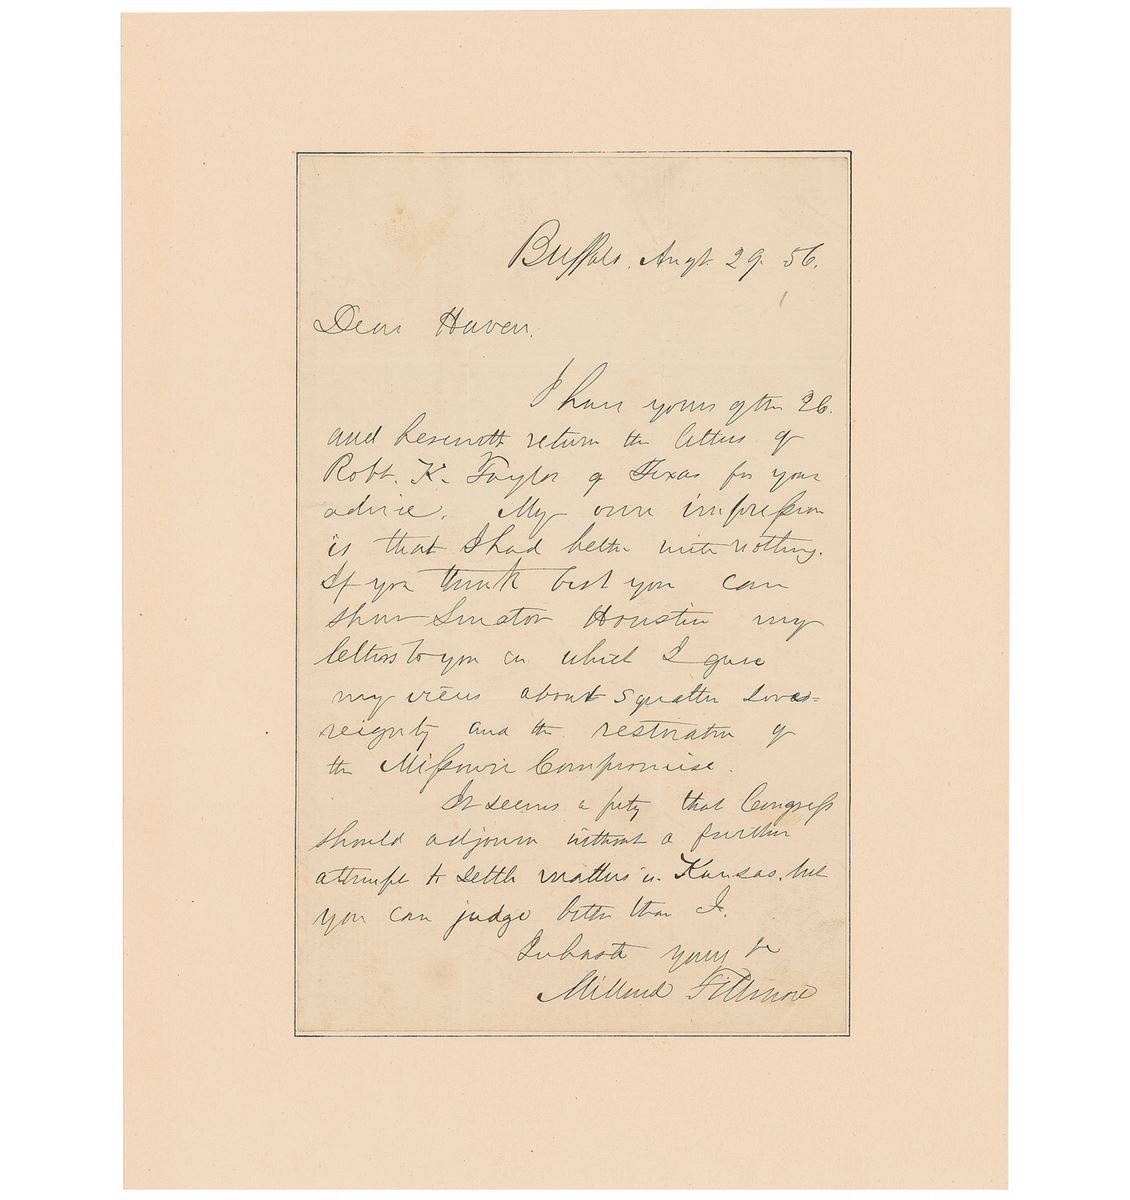 Buffalo, Augt. 29. 56.
Dear Haven.
I have yours of the 26.
and herewith return the letters of
Robt. K. Taylor of Texas for your
advice. My own impression
is that I had better write nothing.
If you think best you can
show Senator Houston my
letters to you in which I gave
my views about squatter Sove=
reignty and the restoration of
the Missouri Compromise.
It seems a pity that Congress
should adjourn without a further
attempt to settle matters in Kansas, but
you can judge better than I.
In haste yours
Millard Fillmore